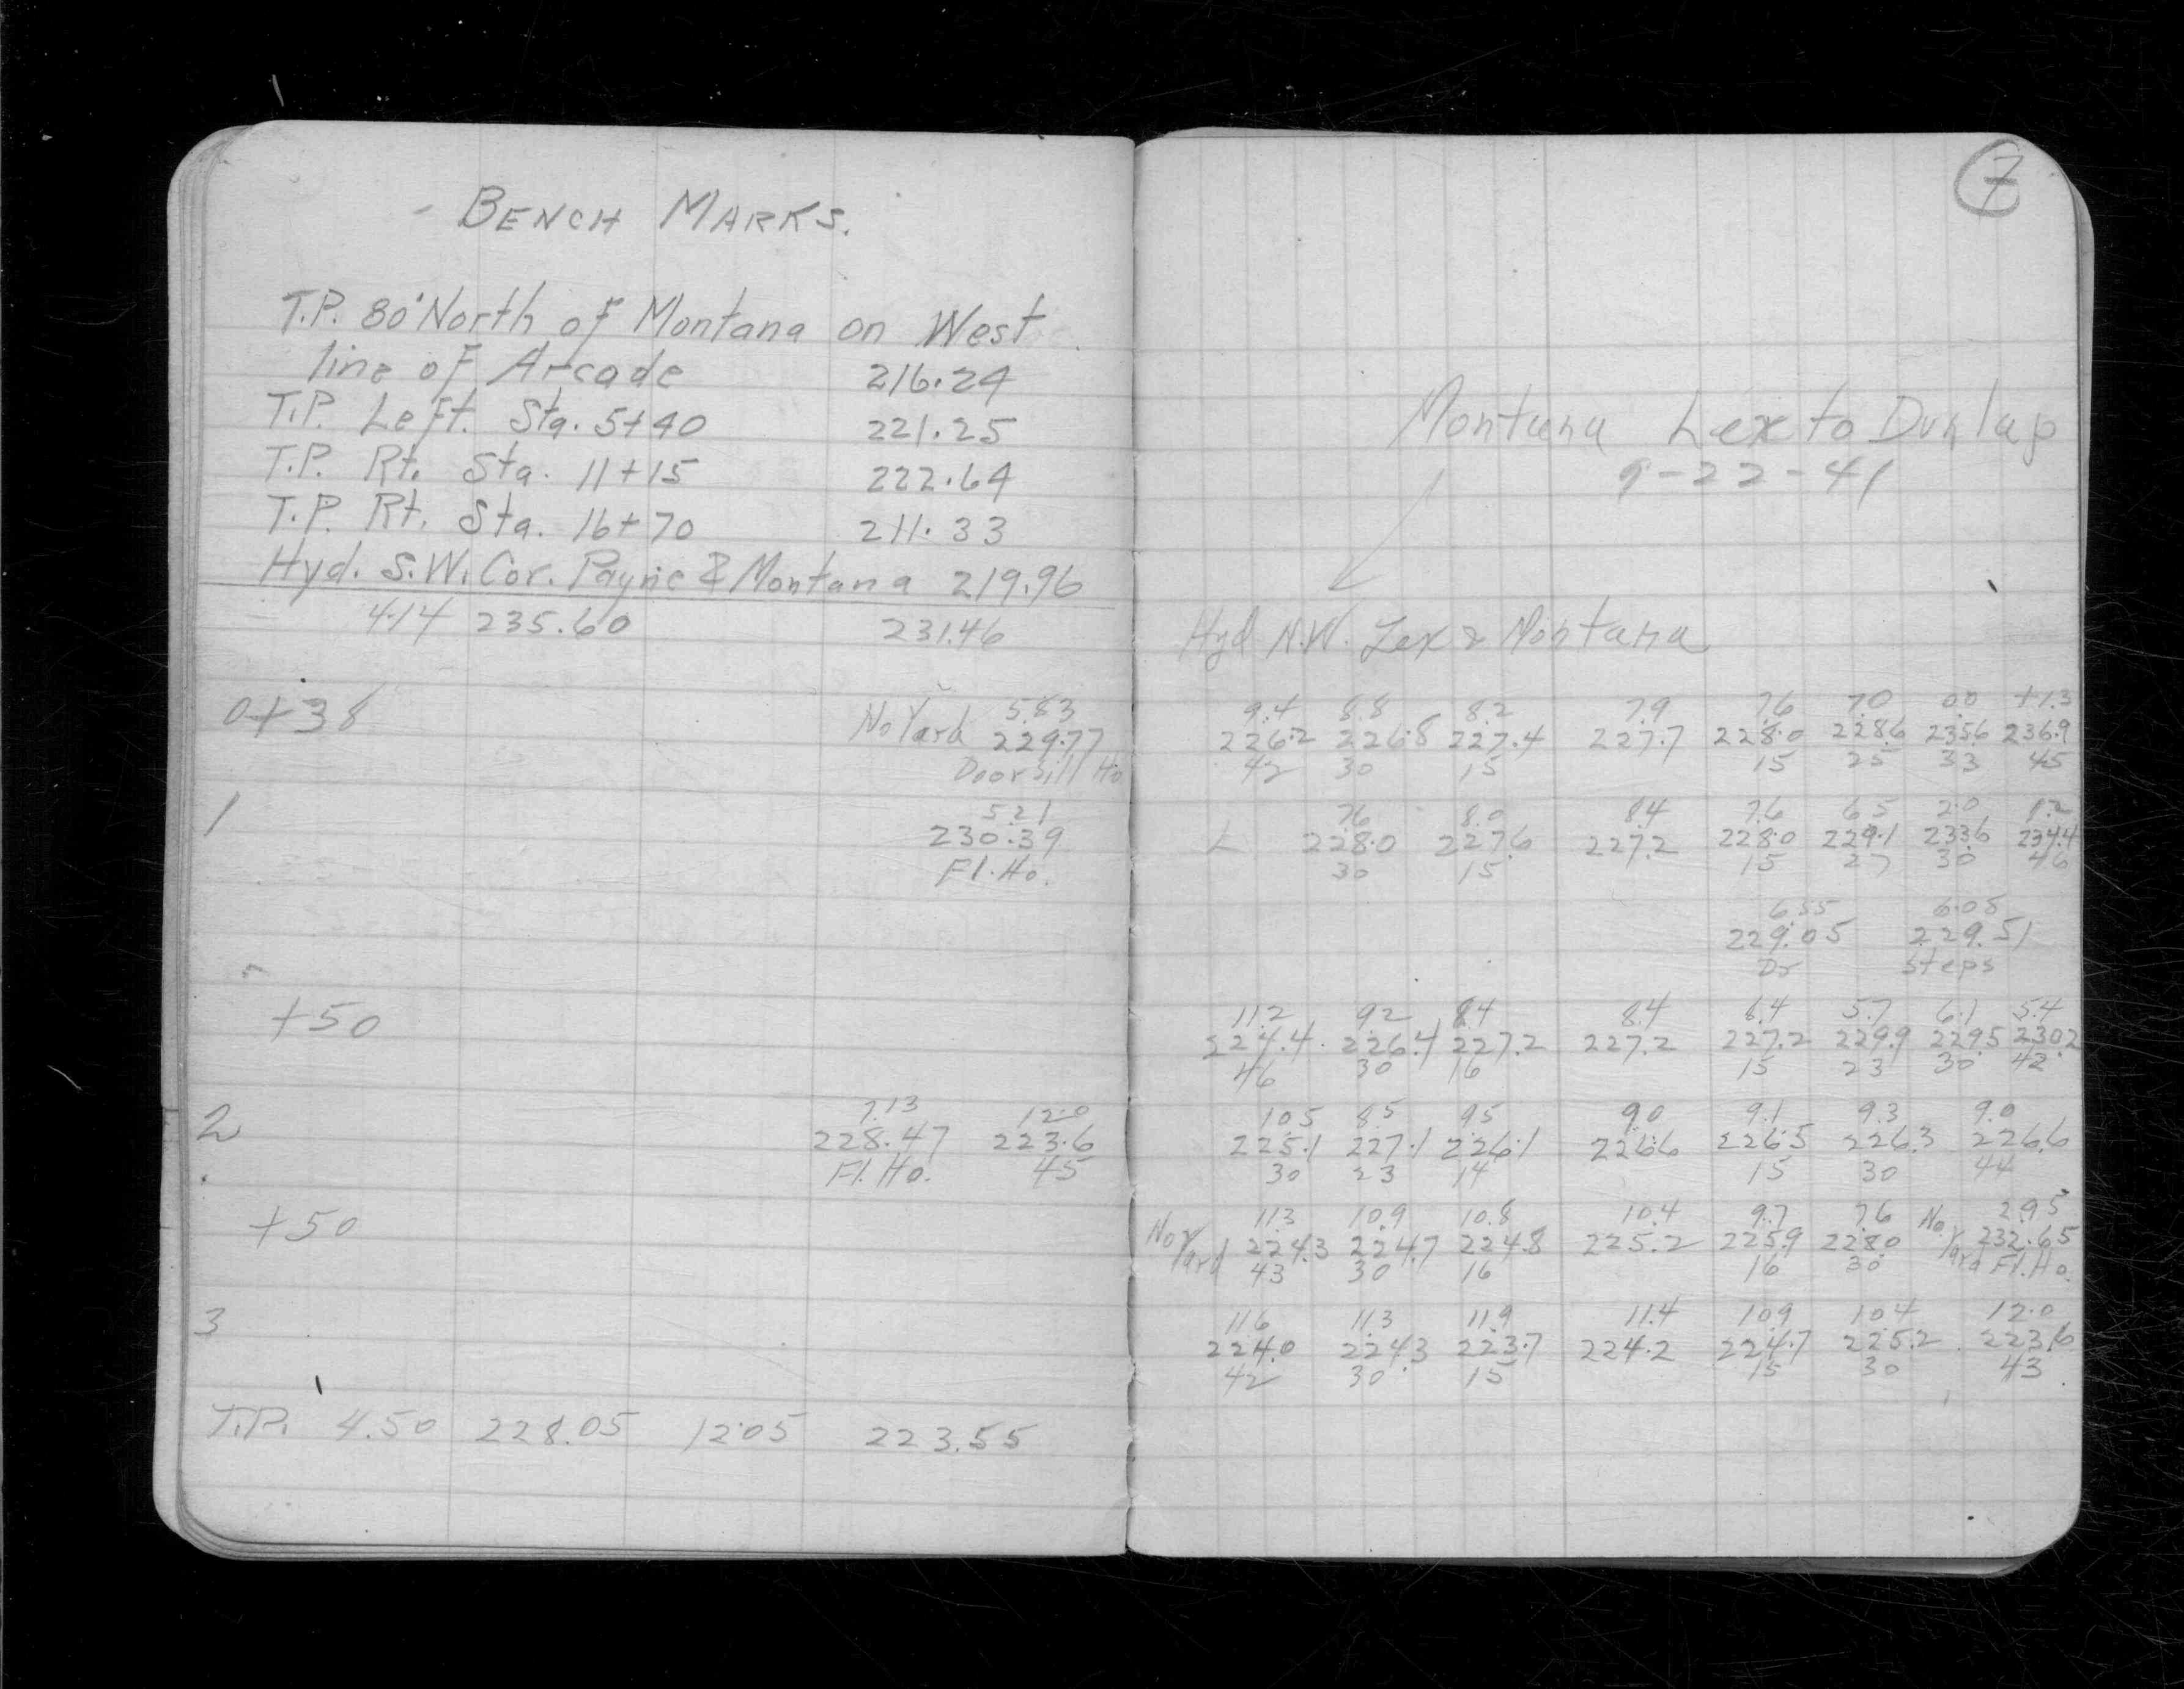 - BENCH MARKS.
T.P. 80' North of Montana on West
line of Arcade 216.24
T.P. Left. Sta. 5+40 221.25
T.P. Rt. Sta. 11+15 222.64
T.P. Rt. Sta. 16+70 211.33
Hyd. S.W. Cor. Payne & Montana 219.96
4.14 235.60 231.46
0+38 No Yard 5.83
229.77
Doorsill Ho
1 5.21
230.39
Fl. Ho.
+50
2 7.13 12.0
228.47 223.6
Fl. Ho. 45
+50
3
T.P. 4.50 228.05 12.05 223.55
7
Montana Lex to Dunlap
9-22-41
Hyd N.W. Lex & Montana
9.4 8.8 8.2 7.9 7.6 7.0 0.0 +1.3
226.2 226.8 227.4 227.7 228.0 228.6 235.6 236.9
42 30 15 15 25 33 45
7.6 8.0 8.4 7.6 6.5 2.0 1.2
L 228.0 227.6 227.2 228.0 229.1 233.6 234.4
30 15 15 27 30 46
6.55 6.08
229.05 229.51
Dr Steps
11.2 9.2 8.4 8.4 8.4 5.7 6.1 5.4
224.4 226.4 227.2 227.2 227.2 229.9 229.5 230.2
46 30 16 15 23 30 42
10.5 8.5 9.5 9.0 9.1 9.3 9.0
225.1 227.1 226.1 226.6 226.5 226.3 226.6
30 23 14 15 30 44
11.3 10.9 10.8 10.4 9.7 7.6 2.95
No Yard 224.3 224.7 224.8 225.2 225.9 228.0 No Yard 232.65
43 30 16 16 30 Fl. Ho.
11.6 11.3 11.9 11.4 10.9 10.4 12.0
224.0 224.3 223.7 224.2 224.7 225.2 223.6
42 30 15 15 30 43